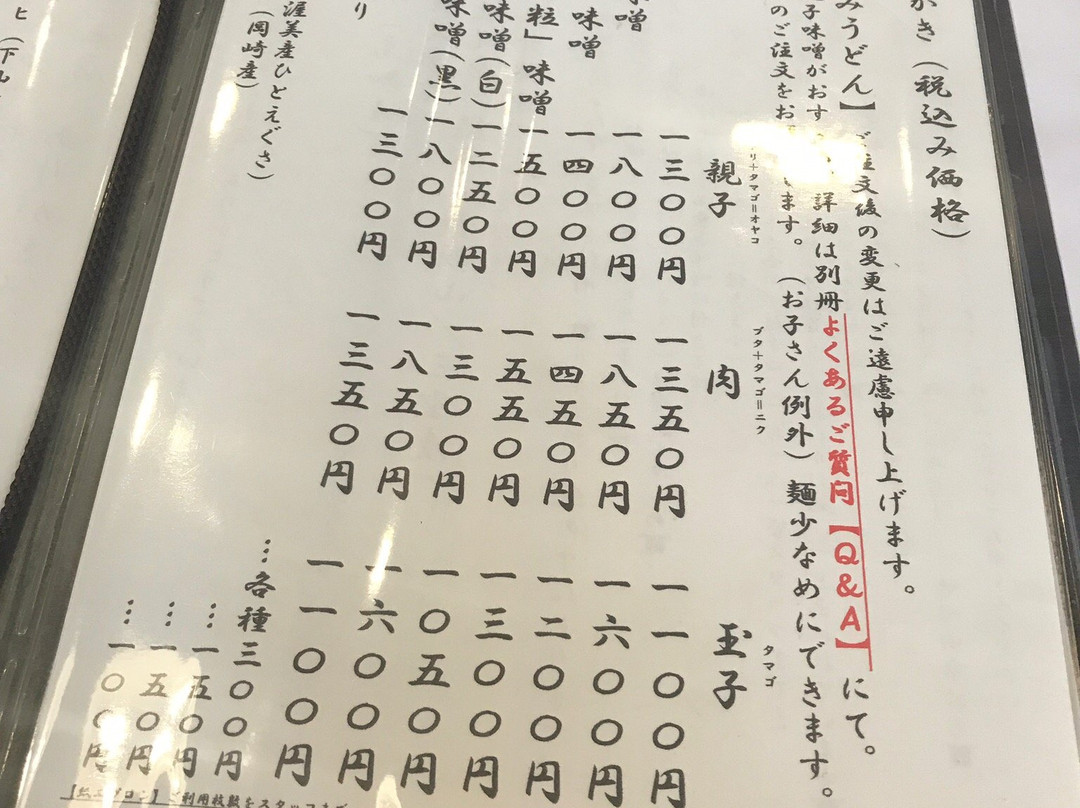 き（税込み価格）
みうどん】ご注文後の変更はご遠慮申し上げます。
子味噌がおす 詳細は別冊よくあるご質問【Q&A】にて。
のご注文をお ます。（お子さん例外）麺少なめにできます。
リ＋タマゴ＝オヤコ ブタ＋タマゴ＝ニク タマゴ
親子 肉 玉子
一三〇〇円 一三五〇円 一一〇〇円
噌 一八〇〇円 一八五〇円 一六〇〇円
味噌 一四〇〇円 一四五〇円 一二〇〇円
粒」味噌 一五〇〇円 一五五〇円 一三〇〇円
味噌（白） 一二五〇円 一三〇〇円 一〇五〇円
味噌（黒） 一八〇〇円 一八五〇円 一六〇〇円
一三〇〇円 一三五〇円 一一〇〇円
り …各種三〇〇円
渥美産ひとえぐさ） …一五〇円
（岡崎産） …一五〇円
…一〇〇円
ご利用枚数をスタッフ
ヒ（下山